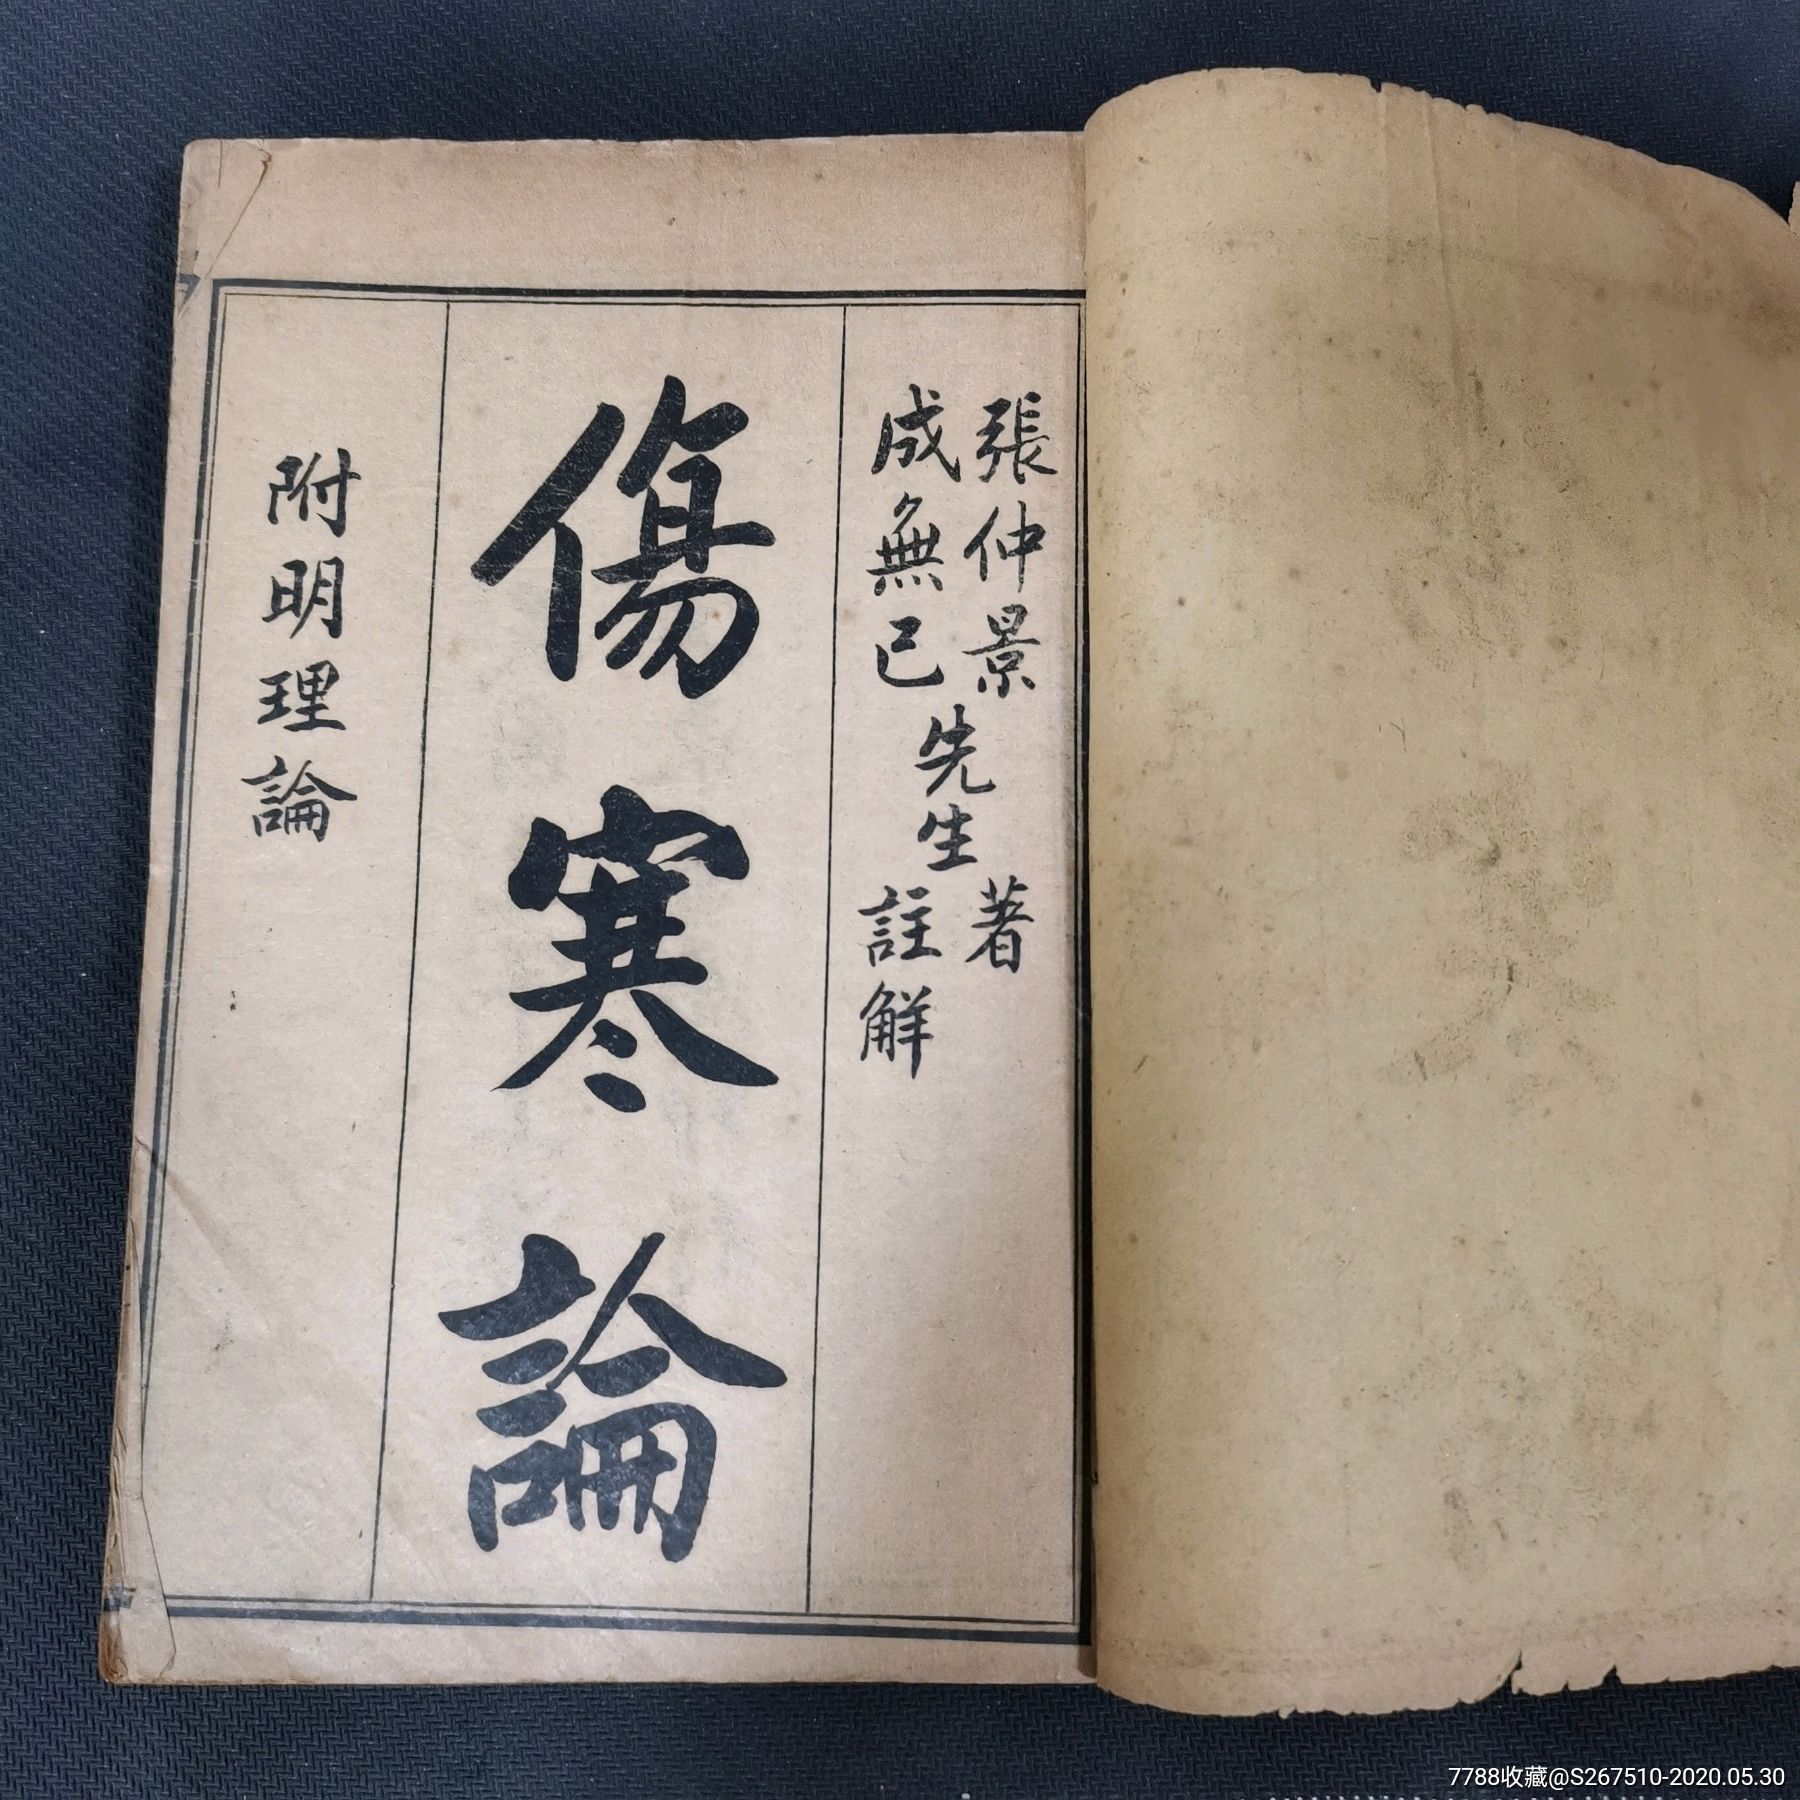 張仲景先生著
成無己先生註解
傷寒論
附明理論
7788收藏@S267510-2020.05.30